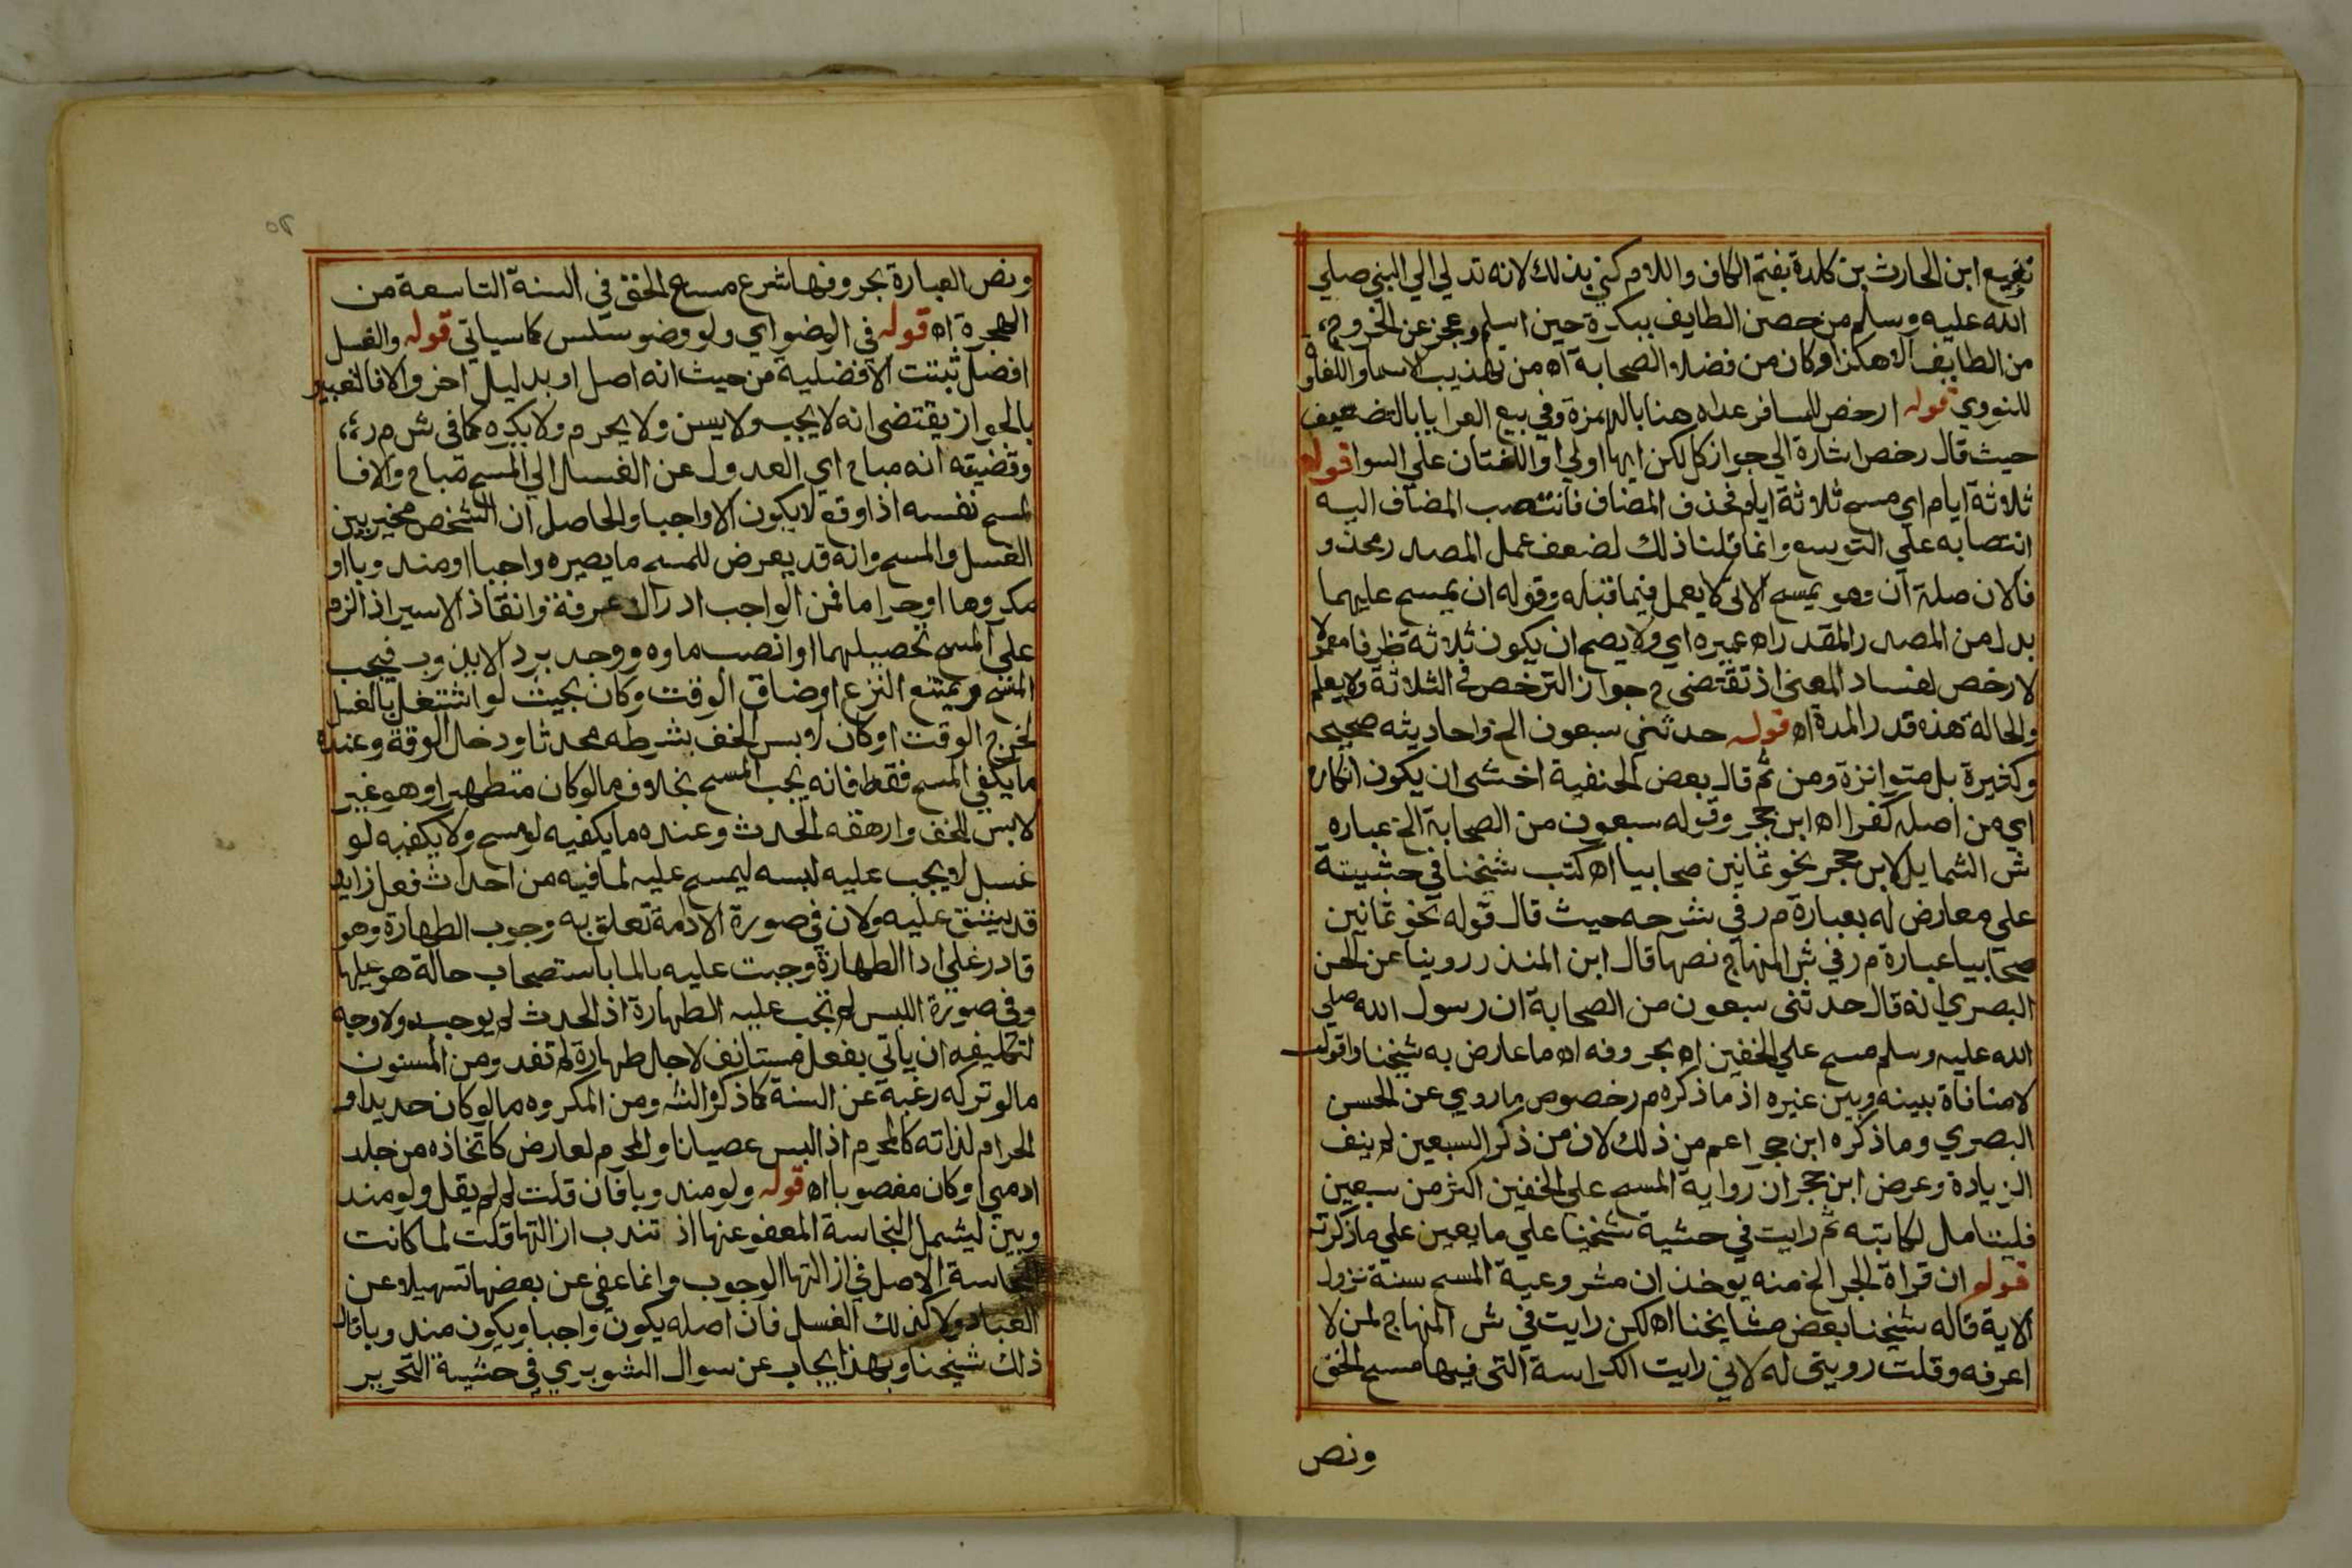 نفيع ابن الحارث بن كلدة بفتح الكاف واللام كني بذلك لانه تدلي الي النبي صلي
الله عليه وسلم من حصن الطايف ببكرة حين اسلم وعجز عن الخروج
من الطايف الا هكذا وكان من فضلاء الصحابة اه من تهذيب الاسما واللغات
للنووي قوله ارخص للمسافر عداه هنا بالهمزة وفي بيع العرايا بالتضعيف
حيث قال رخص اشارة الي جواز كل لكن ايها اولي او اللغتان علي السوا قوله
ثلاثة ايام اي مسح ثلاثة ايام فحذف المضاف فانتصب المضاف اليه
انتصابه علي التوسع وانما قلنا ذلك لضعف عمل المصدر محذو
فا لان صلة ان وهو يمسح الاتي لا يعمل فيما قبله وقوله ان يمسح عليهما
بدل من المصدر المقدر اه عميره اي ولا يصح ان يكون ثلاثة ظرفا معمولا
لارخص لفساد المعني اذ تقتضي ح جواز الترخص في الثلاثة ولا يعلم
والحالة هذه قدر المدة اه قوله حدثني سبعون الخ واحاديثه صحيحه
وكثيرة بل متواترة ومن ثم قال بعض الحنفية اخشي ان يكون انكاره
اي من اصله كفرا اه ابن حجر وقوله سبعون من الصحابة الخ عباره
ش الشمايل لابن حجر نحو ثمانين صحابيا اه كتب شيخنا في حشيته
علي معارض له بعبارة م ر في شرحه حيث قال قوله نحو ثمانين
صحابيا عبارة م ر في ش المنهاج نصها قال ابن المنذر روينا عن الحسن
البصري انه قال حدثني سبعون من الصحابة ان رسول الله صلي
الله عليه وسلم مسح علي الخفين اه بحروفه اه ما عارض به شيخنا واقول
لا منافاة بينه وبين غيره اذ ما ذكره م ر خصوص ما روي عن الحسن
البصري وما ذكره ابن حجر اعم من ذلك لان من ذكر السبعين لم ينف
الزيادة وعرض ابن حجر ان رواية المسح علي الخفين اكثر من سبعين
فليتامل لكاتبه ثم رايت في حشية شيخنا علي ما يعين علي ما ذكرته
قوله ان قراة الجر الخ منه يوخذ ان مشروعية المسح سنة نزول
الاية قاله شيخنا بعض مشايخنا اه لكن رايت في ش المنهاج لمن لا
اعرفه وقلت رويتي له لاني رايت الكراسة التي فيها مسح الخف
ونص
ونص العبارة بحروفها شرع مسح الخف في السنة التاسعة من
الهجرة اه قوله في الوضو اي ولو وضو سلس كما سياتي قوله والغسل
افضل ثبتت الافضلية من حيث انه اصل او بدليل اخر والا فالتعبير
بالجواز يقتضي انه لا يجب ولا يسن ولا يحرم ولا يكره كما في ش م ر
وقضيته انه مباح اي العدول عن الغسل الي المسح مباح والا فا
لمسح نفسه اذا وقع لا يكون الا واجبا والحاصل ان الشخص مخير بين
الغسل والمسح وانه قد يعرض للمسح ما يصيره واجبا او مندوبا او
مكروها او حراما فمن الواجب ادراك عرفة وانقاذ الاسير اذ الزم
علي المسح تحصيلهما او انصب ماوه ووجد برد لا يذوب فيجب
المسح ويمتنع النزع او ضاق الوقت وكان بحيث لو اشتغل بالغسل
لخرج الوقت او كان لابس الخف بشرطه محدثا ودخل الوقت وعنده
ما يكفي المسح فقط فانه يجب المسح بخلاف ما لو كان متطهرا وهو غير
لابس الخف وارهقه الحدث وعنده ما يكفيه لو مسح ولا يكفيه لو
غسل لا يجب عليه لبسه ليمسح عليه لما فيه من احداث فعل زايد
قد يشق عليه ولان في صورة الادامة تعلق به وجوب الطهارة وهو
قادر علي ادا الطهارة وجبت عليه بالما باستصحاب حالة هو عليها
وفي صورة اللبس لم تجب عليه الطهارة اذ الحدث لم يوجد ولا وجه
لتكليفه ان ياتي بفعل مستانف لاجل طهارة لم تفد ومن المسنون
ما لو تركه رغبة عن السنة كما ذكره الش ومن المكروه ما لو كان حديدا و
الحرام لذاته كالمحرم اذ البس عصيانا والمحرم لعارض كاتخاذه من جلد
ادمي او كان مغصوبا اه قوله ولو مندوبا فان قلت لم لم يقل ولو مند
وبين ليشمل النجاسة المعفو عنها اذ تندب ازالتها قلت لما كانت
النجاسة الاصل في ازالتها الوجوب وانما عفي عن بعضها تسهيلا عن
العباد ولا كذلك الغسل فان اصله يكون واجبا ويكون مندوبا قال
ذلك شيخنا وبهذا يجاب عن سوال الشوبري في حشية التحرير